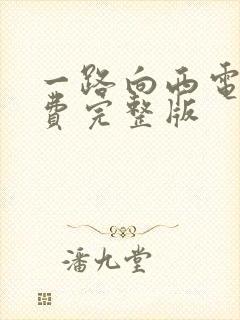 一路向西电
费完整版
潘九堂